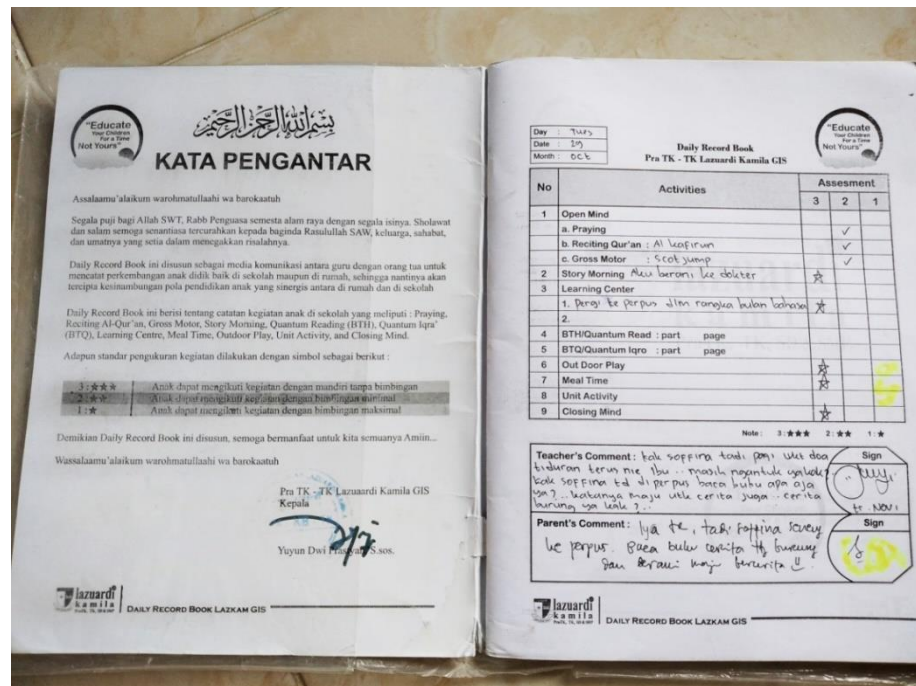 "Educate
Your Children
For a Time
Not Yours"
بسم الله الرحمن الرحيم
KATA PENGANTAR
Assalaamu'alaikum warohmatullaahi wa barokaatuh
Segala puji bagi Allah SWT, Rabb Penguasa semesta alam raya dengan segala isinya. Sholawat
dan salam semoga senantiasa tercurahkan kepada baginda Rasulullah SAW, keluarga, sahabat,
dan umatnya yang setia dalam menegakkan risalahnya.
Daily Record Book ini disusun sebagai media komunikasi antara guru dengan orang tua untuk
mencatat perkembangan anak didik baik di sekolah maupun di rumah, sehingga nantinya akan
tercipta kesinambungan pola pendidikan anak yang sinergis antara di rumah dan di sekolah
Daily Record Book ini berisi tentang catatan kegiatan anak di sekolah yang meliputi : Praying,
Reciting Al-Qur'an, Gross Motor, Story Morning, Quantum Reading (BTH), Quantum Iqra'
(BTQ), Learning Centre, Meal Time, Outdoor Play, Unit Activity, and Closing Mind.
Adapun standar pengukuran kegiatan dilakukan dengan simbol sebagai berikut :
3 : ★★★ Anak dapat mengikuti kegiatan dengan mandiri tanpa bimbingan
2 : ★★ Anak dapat mengikuti kegiatan dengan bimbingan minimal
1 : ★ Anak dapat mengikuti kegiatan dengan bimbingan maksimal
Demikian Daily Record Book ini disusun, semoga bermanfaat untuk kita semuanya Amiin...
Wassalaamu'alaikum warohmatullaahi wa barokaatuh
Pra TK - TK Lazuardi Kamila GIS
Kepala
Yuyun Dwi S.sos.
lazuardi
kamila
DAILY RECORD BOOK LAZKAM GIS
Day :
Date :
Month : Oct
Daily Record Book
Pra TK - TK Lazuardi Kamila GIS
"Educate
Your Children
For a Time
Not Yours"
No Activities Assesment
3 2 1
1 Open Mind
a. Praying ✓
b. Reciting Qur'an : Al kafirun ✓
c. Gross Motor : Scot jump ✓
2 Story Morning Aku berani ke dokter ☆
3 Learning Center
1. Pergi ke perpus dlm rangka bulan bahasa ☆
2.
4 BTH/Quantum Read : part page
5 BTQ/Quantum Iqro : part page
6 Out Door Play ☆
7 Meal Time ☆
8 Unit Activity
9 Closing Mind ☆
Note : 3 : ★★★ 2 : ★★ 1 : ★
Teacher's Comment : kak soffina tadi pagi wkt doa
tiduran terus nie Ibu .. masih ngantuk ya kak?
kak soffina td di perpus baca buku apa aja
ya? .. katanya maju utk cerita juga .. cerita
burung ya kak ? ..
Sign
Novi
Parent's Comment : Iya te, tadi soffina
ke perpus. Baca buku cerita ttg burung
dan berani maju bercerita
Sign
lazuardi
kamila
DAILY RECORD BOOK LAZKAM GIS